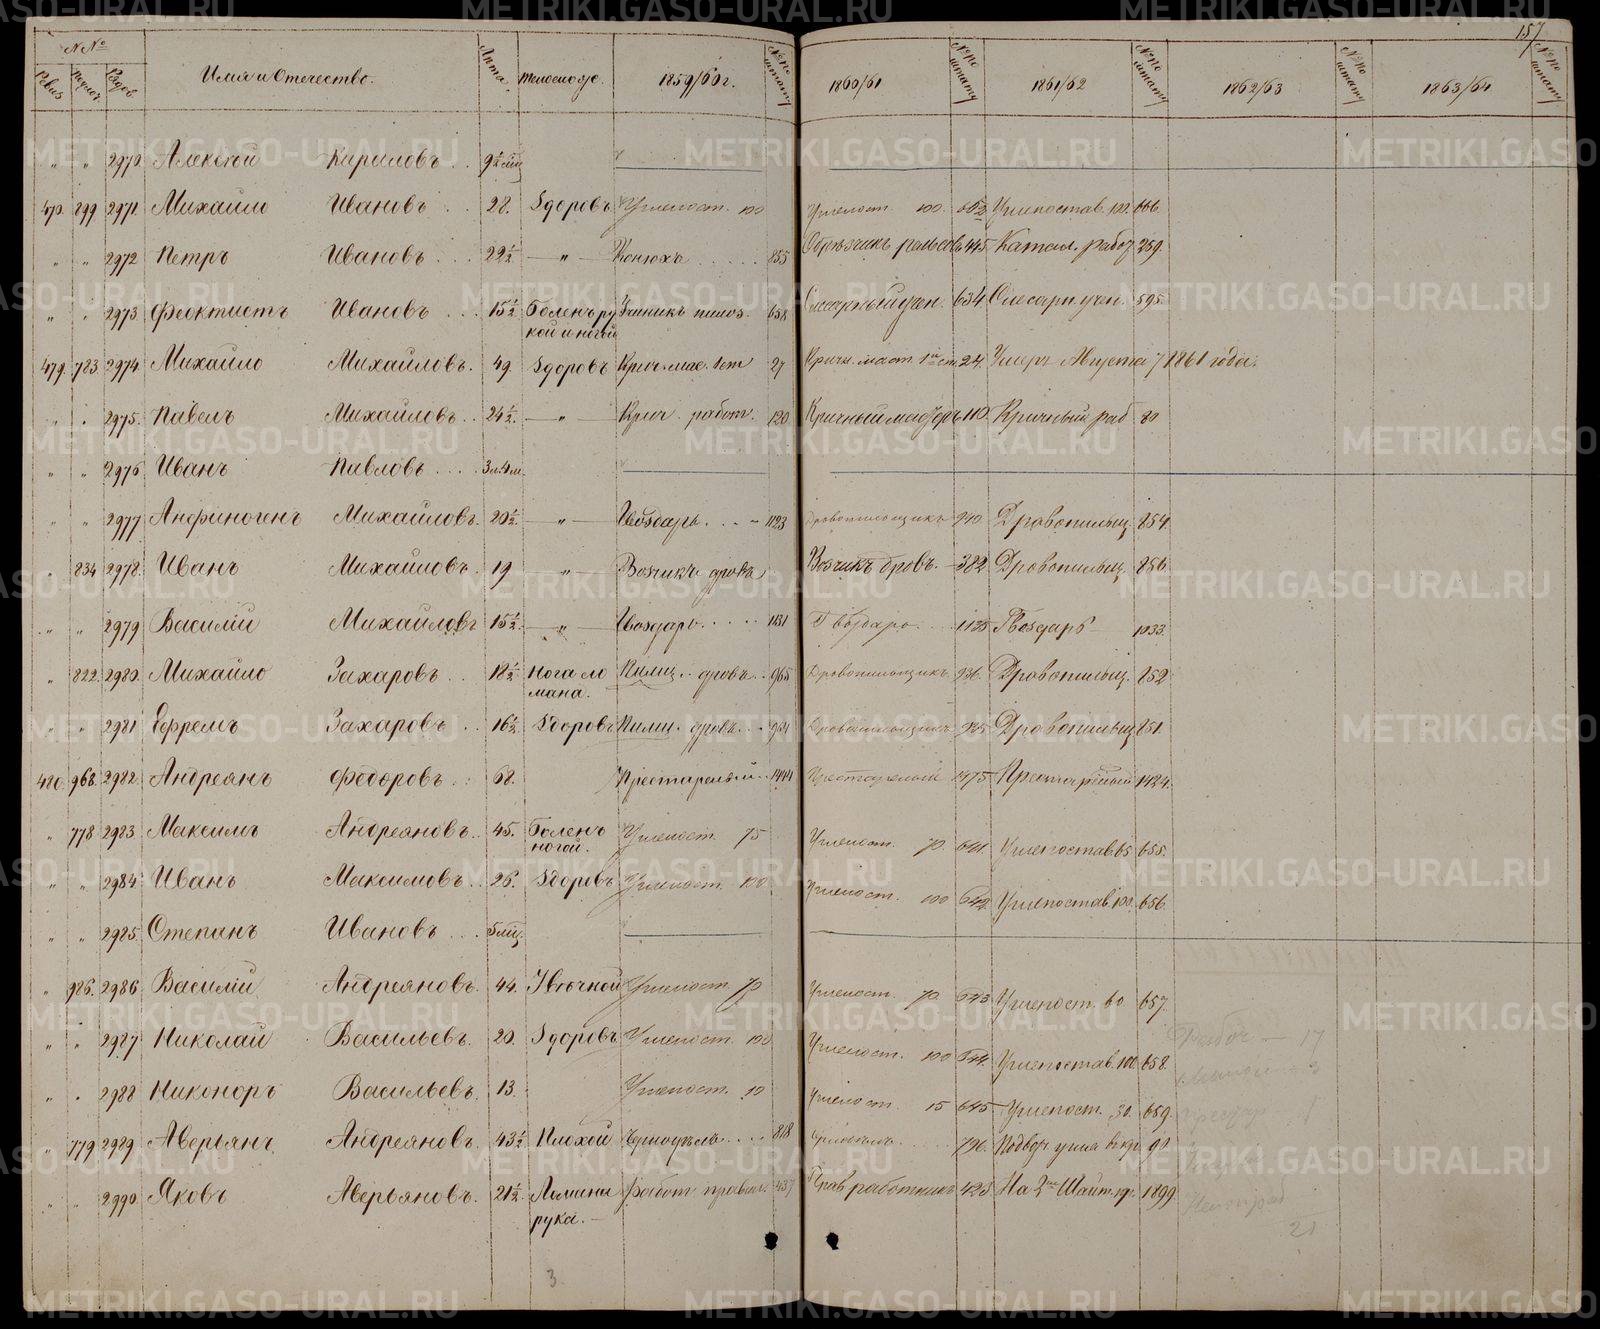 157
N№
Ревиз. Рядов. Имя и Отечество. Лета Телосложе. 1859/60 г. №№ по штату 1860/61 №№ по штату 1861/62 №№ по штату 1862/63 №№ по штату 1863/64 №№ по штату
" " 2970 Алексѣй Кириловъ
" 899 2971 Михайло Ивановъ 28. Здоровъ Углепост. 100 Углепост. 100. 652 Углепостав. 100. 666.
" " 2972 Петръ Ивановъ 22½ — " — Конюхъ 855 Обрѣзчикъ рельсовъ 445 Катал. работ 259.
" " 2973 Феоктистъ Ивановъ 15½ Боленъ ру 658 634 Слесарн. учен. 595
кой и ногой
479. 783 2974 Михайло Михайловъ. 49 Здоровъ Крич. мас. 1 ст 27 Кричн. маст. 1й ст. 24. Умеръ Августа 7 1861 года.
" " 2975. Павелъ Михайловъ 24½ — " — Крич. работ. 120 Кричный мастеръ 110. Кричный раб 80
" " 2976 Иванъ Павловъ 3 л. 4 м.
" " 2977 Анфиногенъ Михайловъ. 20½ — " — Гвоздарь 1123 Дровопильщикъ 940 Дровопильщ. 854.
" 834 2978. Иванъ Михайловъ. 19 — " — Возчикъ дровъ Возчикъ дровъ. 382 Дровопильщ. 856.
" " 2979 Василій Михайловъ 15½ — " — Гвоздарь 1131 Гвоздарь 1135 Гвоздарь 1033.
" 822. 2980. Михайло Захаровъ 18½ Нога ло Пилщ. дровъ 965 Дровопильщикъ 936. Дровопильщ. 852
мана.
" " 2981 Ефремъ Захаровъ 16½ Здоровъ Пилщ. дровъ 964 Дровопильщикъ 935 Дровопильщ 851.
480. 968. 2982. Андреянъ Федоровъ 68. Престарелый 1441 Престарелый 1475 Престарелый 1424.
" 778 2983 Максимъ Андреяновъ 45. Боленъ Углепост. 75 Углепост. 70. 641 Углепостав. 65 655.
ногой.
" " 2984 Иванъ Максимовъ 26. Здоровъ Углепост. 100 Углепост. 100 642. Углепостав. 100. 656.
" " 2985. Степанъ Ивановъ 5 мц.
" 986. 2986 Василій Андреяновъ. 44. Увѣчной Углепост. 70 Углепост. 70. 643 Углепост. 60 657.
" " 2987 Николай Васильевъ. 20. Здоровъ Углепост. 100 Углепост. 100 644. Углепостав. 100 658.
" " 2988 Никоноръ Васильевъ. 13. Углепост. 10 Углепост. 15 645 Углепост. 30. 659.
" 779 2989 Аверьянъ Андреяновъ. 43½ Плохой 818 796. Подвоз. угля 90
" " 2990 Яковъ Аверьяновъ. 21½ Ломана Работ. правил. 437 Прав работникъ 428
рука.
3.
21